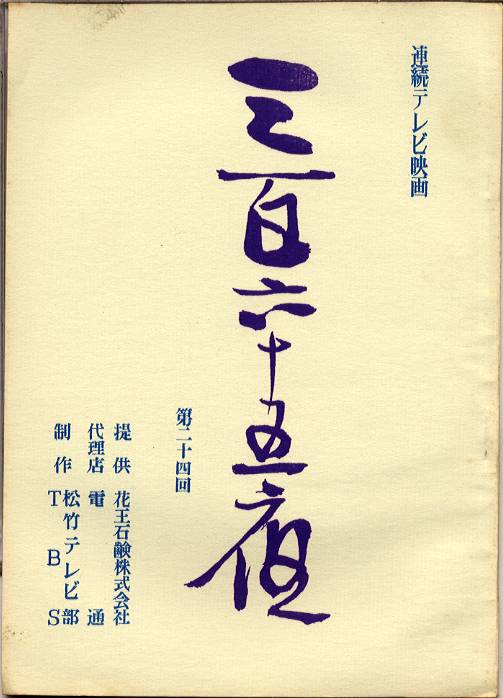 連続テレビ映画
三百六十五夜
第二十四回
提供 花王石鹸株式会社
代理店 電通
制作 松竹テレビ部
TBS